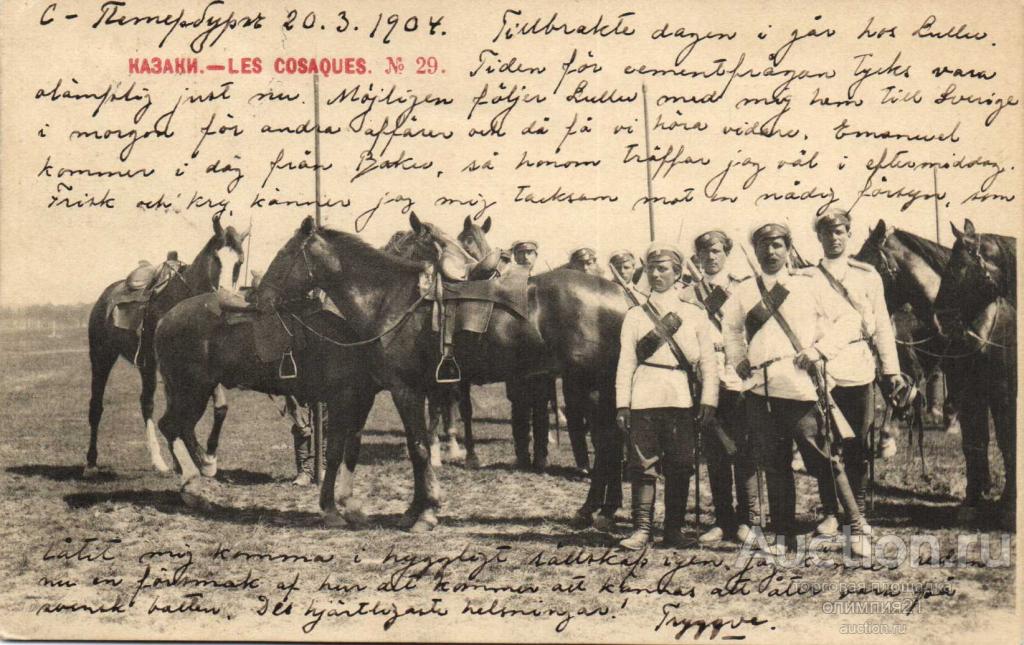 С-Петербургъ 20.3.1904. Tillbrakte dagen i går hos Lullu.
КАЗАКИ.—LES COSAQUES. № 29.
Tiden för cementfrågan tycks vara
olämplig just nu. Möjligen följer Lullu med mig hem till Sverige
i morgon för andra affärer och då få vi höra vidare. Emanuel
kommer i dag från Baku, så honom träffar jag väl i eftermiddag.
Frisk och kry, känner jag mig tacksam mot en nådig försyn, som
låtit mig komma i hyggligt sällskap igen. Jag känner redan
nu en försmak af hur det kommer att kännas att åter vara på
svensk botten. De hjärtligaste helsningar! Tryggve.
Auction.ru
Торговая площадка
ОЛИМПИЯ21
auction.ru